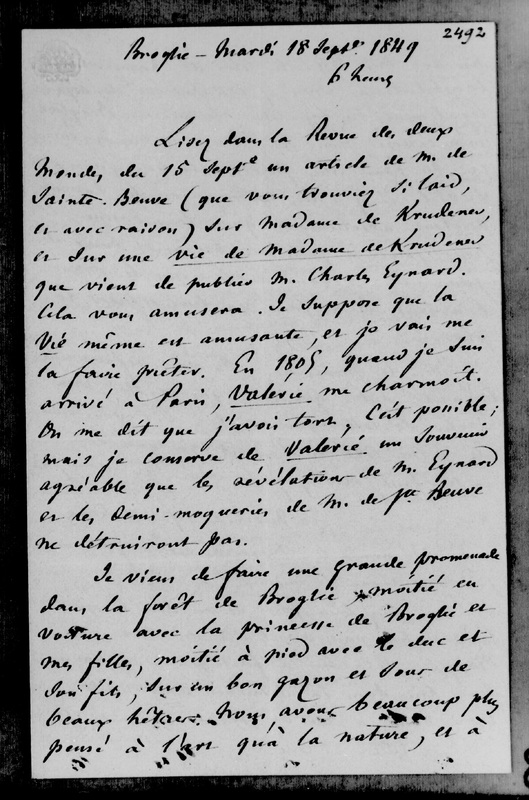 2492
Broglie - Mardi 18 Septe 1849
6 heures
Lisez dans la Revue des deux
Mondes du 15 Septe un article de M. de
Sainte-Beuve (que vous trouviez si laid,
et avec raison) sur Madame de Krudener,
et sur une vie de Madame de Krudener
que vient de publier M. Charles Eynard.
Cela vous amusera. Je suppose que la
Vie même est amusante, et je vais me
la faire prêter. En 1805, quand je suis
arrivé à Paris, Valérie me charmoit.
On me dit que j'avois tort. C'est possible;
mais je conserve de Valérie un souvenir
agréable que les révélations de M. Eynard
et les demi-moqueries de M. de Ste Beuve
ne détruiront pas.
Je viens de faire une grande promenade
dans la forêt de Broglie, moitié en
voiture avec la princesse de Broglie et
mes filles, moitié à pied avec le duc et
son fils, sur un bon gazon et sous de
beaux hêtres. Nous avons beaucoup plus
pensé à l'art qu'à la nature, et à